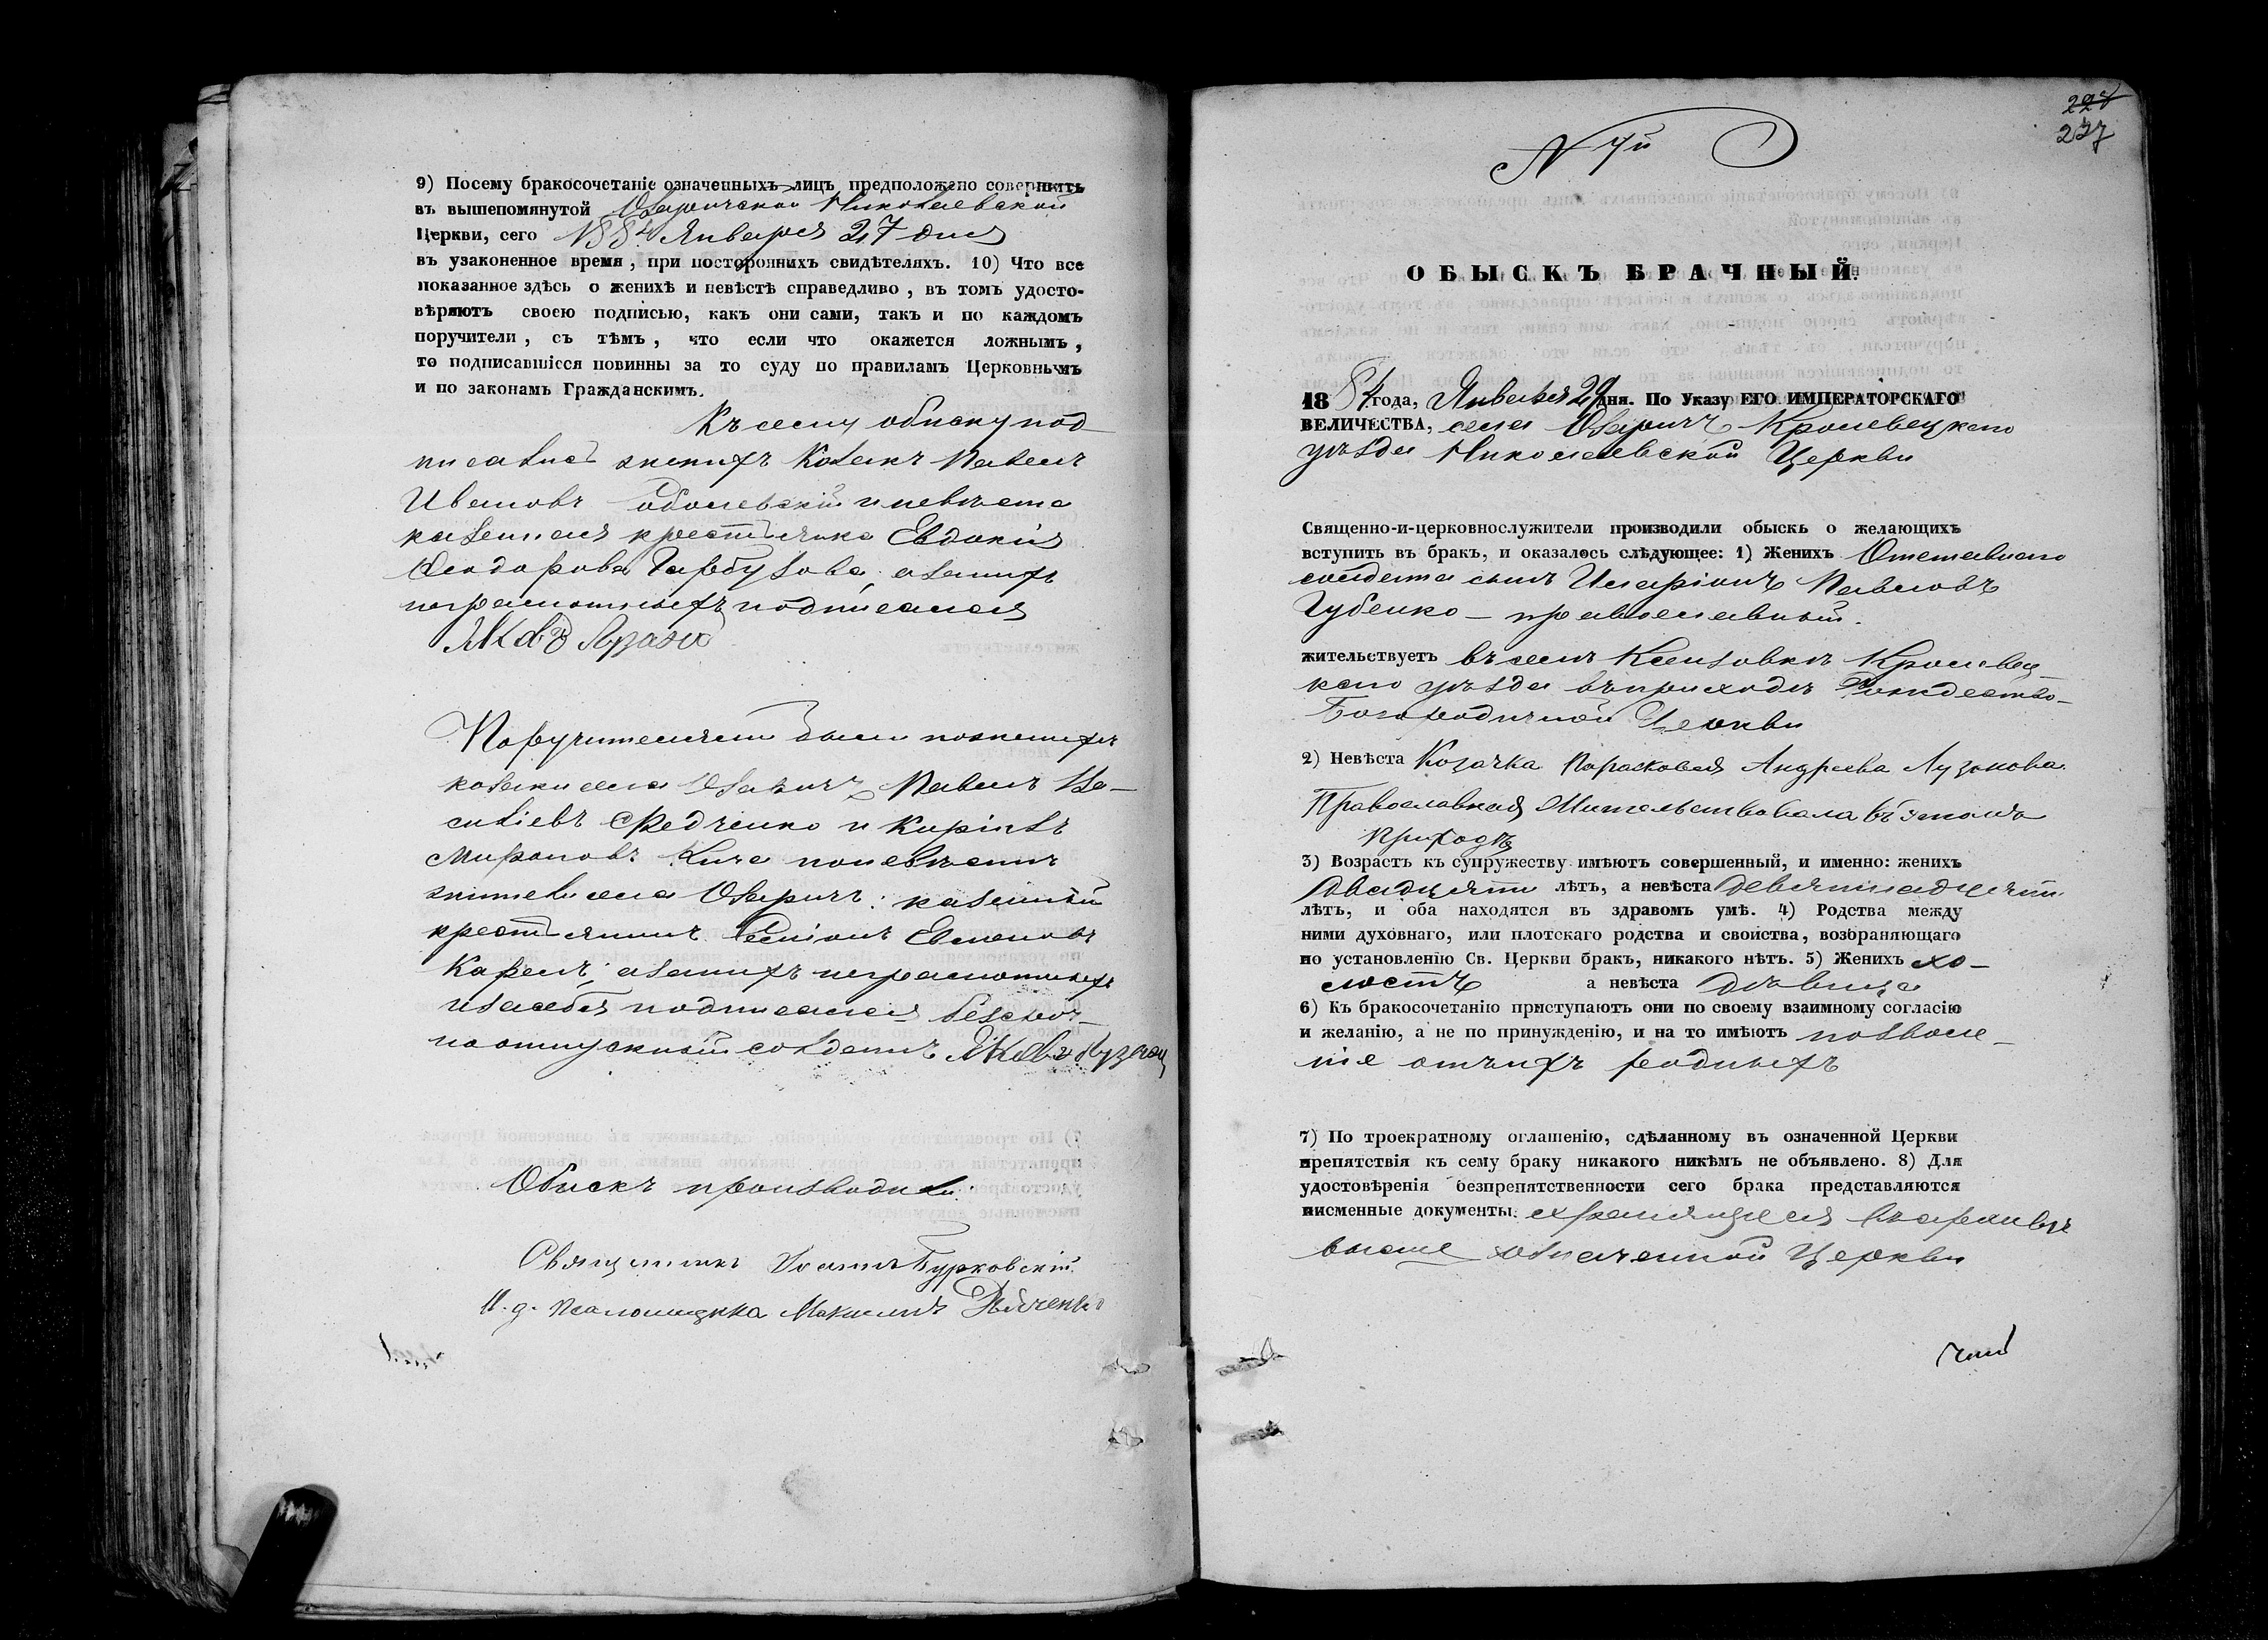 9) Посему бракосочетаніе означенныхъ лицъ предположено совершить
въ вышепомянутой Озаричской Николаевской
Церкви, сего 1884 Января 27 дня
въ узаконенное время, при постороннихъ свидѣтеляхъ. 10) Что все
показанное здѣсь о женихѣ и невѣстѣ справедливо, въ томъ удосто-
вѣряютъ своею подписью, какъ они сами, такъ и по каждомъ
поручители, съ тѣмъ, что если что окажется ложнымъ,
то подписавшіеся повинны за то суду по правиламъ Церковнымъ
и по законамъ Гражданскимъ.
Къ сему обыску под-
писались женихъ Козакъ Павелъ
Ивановъ и невѣста
казенная крестьянка Евдокія
Феодорова Гарбузова, а за нихъ
неграмотныхъ подписался
Яковъ
Поручителями были по женихѣ
козаки села Озаричъ Павелъ Ва-
сильевъ Федченко и Кирилъ
Мироновъ по невѣстѣ
жители села Озаричъ: казенный
крестьянинъ
а за нихъ неграмотныхъ
и за себя подписался безсроч-
но отпускный солдатъ Яковъ
Обыскъ производили:
Священникъ Іоаннъ Бурковскій
И. д. псаломщика Максимъ
N 7й
227
237
ОБЫСКЪ БРАЧНЫЙ.
1884 года, Января 29 дня. По Указу ЕГО ИМПЕРАТОРСКАГО
ВЕЛИЧЕСТВА, села Озаричъ Кролевецкаго
уѣзда Николаевской Церкви
Священно-и-церковнослужители производили обыскъ о желающихъ
вступить въ бракъ, и оказалось слѣдующее: 1) Женихъ Отставнаго
солдата сынъ Иларіонъ Павловъ
Губенко — православный.
жительствуетъ въ селѣ Ксензовкѣ Кролевец-
каго уѣзда въ приходѣ Рождество-
Богородичной Церкви
2) Невѣста Козачка Парасковея Андреева Лузанова
Православная Жительствовала въ этомъ
приходѣ
3) Возрастъ къ супружеству имѣютъ совершенный, и именно: женихъ
двадцати лѣтъ, а невѣста девятнадцати
лѣтъ, и оба находятся въ здравомъ умѣ. 4) Родства между
ними духовнаго, или плотскаго родства и свойства, возбраняющаго
по установленію Св. Церкви бракъ, никакого нѣтъ. 5) Женихъ хо-
лостъ а невѣста дѣвица
6) Къ бракосочетанію приступаютъ они по своему взаимному согласію
и желанію, а не по принужденію, и на то имѣютъ позволе-
ніе отъ ихъ родныхъ
7) По троекратному оглашенію, сдѣланному въ означенной Церкви
препятствія къ сему браку никакого никѣмъ не объявлено. 8) Для
удостовѣренія безпрепятственности сего брака представляются
писменные документы: хранящіеся въ архивѣ
выше означенной Церкви